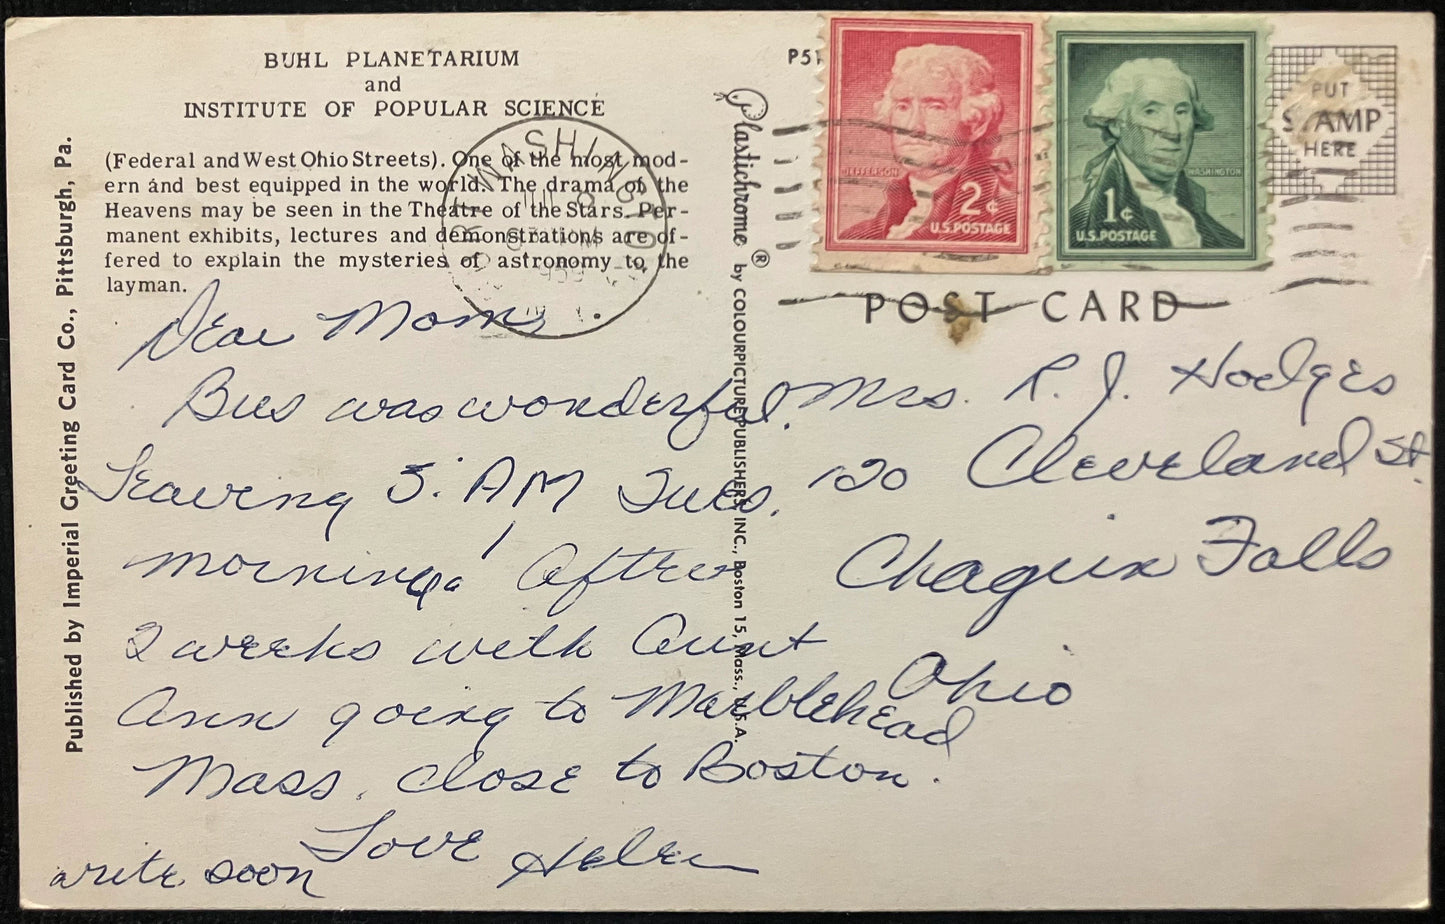 BUHL PLANETARIUM
and
INSTITUTE OF POPULAR SCIENCE
(Federal and West Ohio Streets). One of the most mod-
ern and best equipped in the world. The drama of the
Heavens may be seen in the Theatre of the Stars. Per-
manent exhibits, lectures and demonstrations are of-
fered to explain the mysteries of astronomy to the
layman.
Published by Imperial Greeting Card Co., Pittsburgh, Pa.
Dear Mom,
Bus was wonderful.
Leaving 5: AM Tues.
morning. After
2 weeks with Aunt
Ann going to Marblehead
Mass. close to Boston.
Love Helen
write soon
Plastichrome ® by COLOURPICTURE PUBLISHERS, INC., Boston 15, Mass., U.S.A.
P51
JEFFERSON
2¢
U.S. POSTAGE
WASHINGTON
1¢
U.S. POSTAGE
PUT
STAMP
HERE
WASHINGTON
1959
POST CARD
Mrs. R. J. Hodges
120 Cleveland St.
Chagrin Falls
Ohio